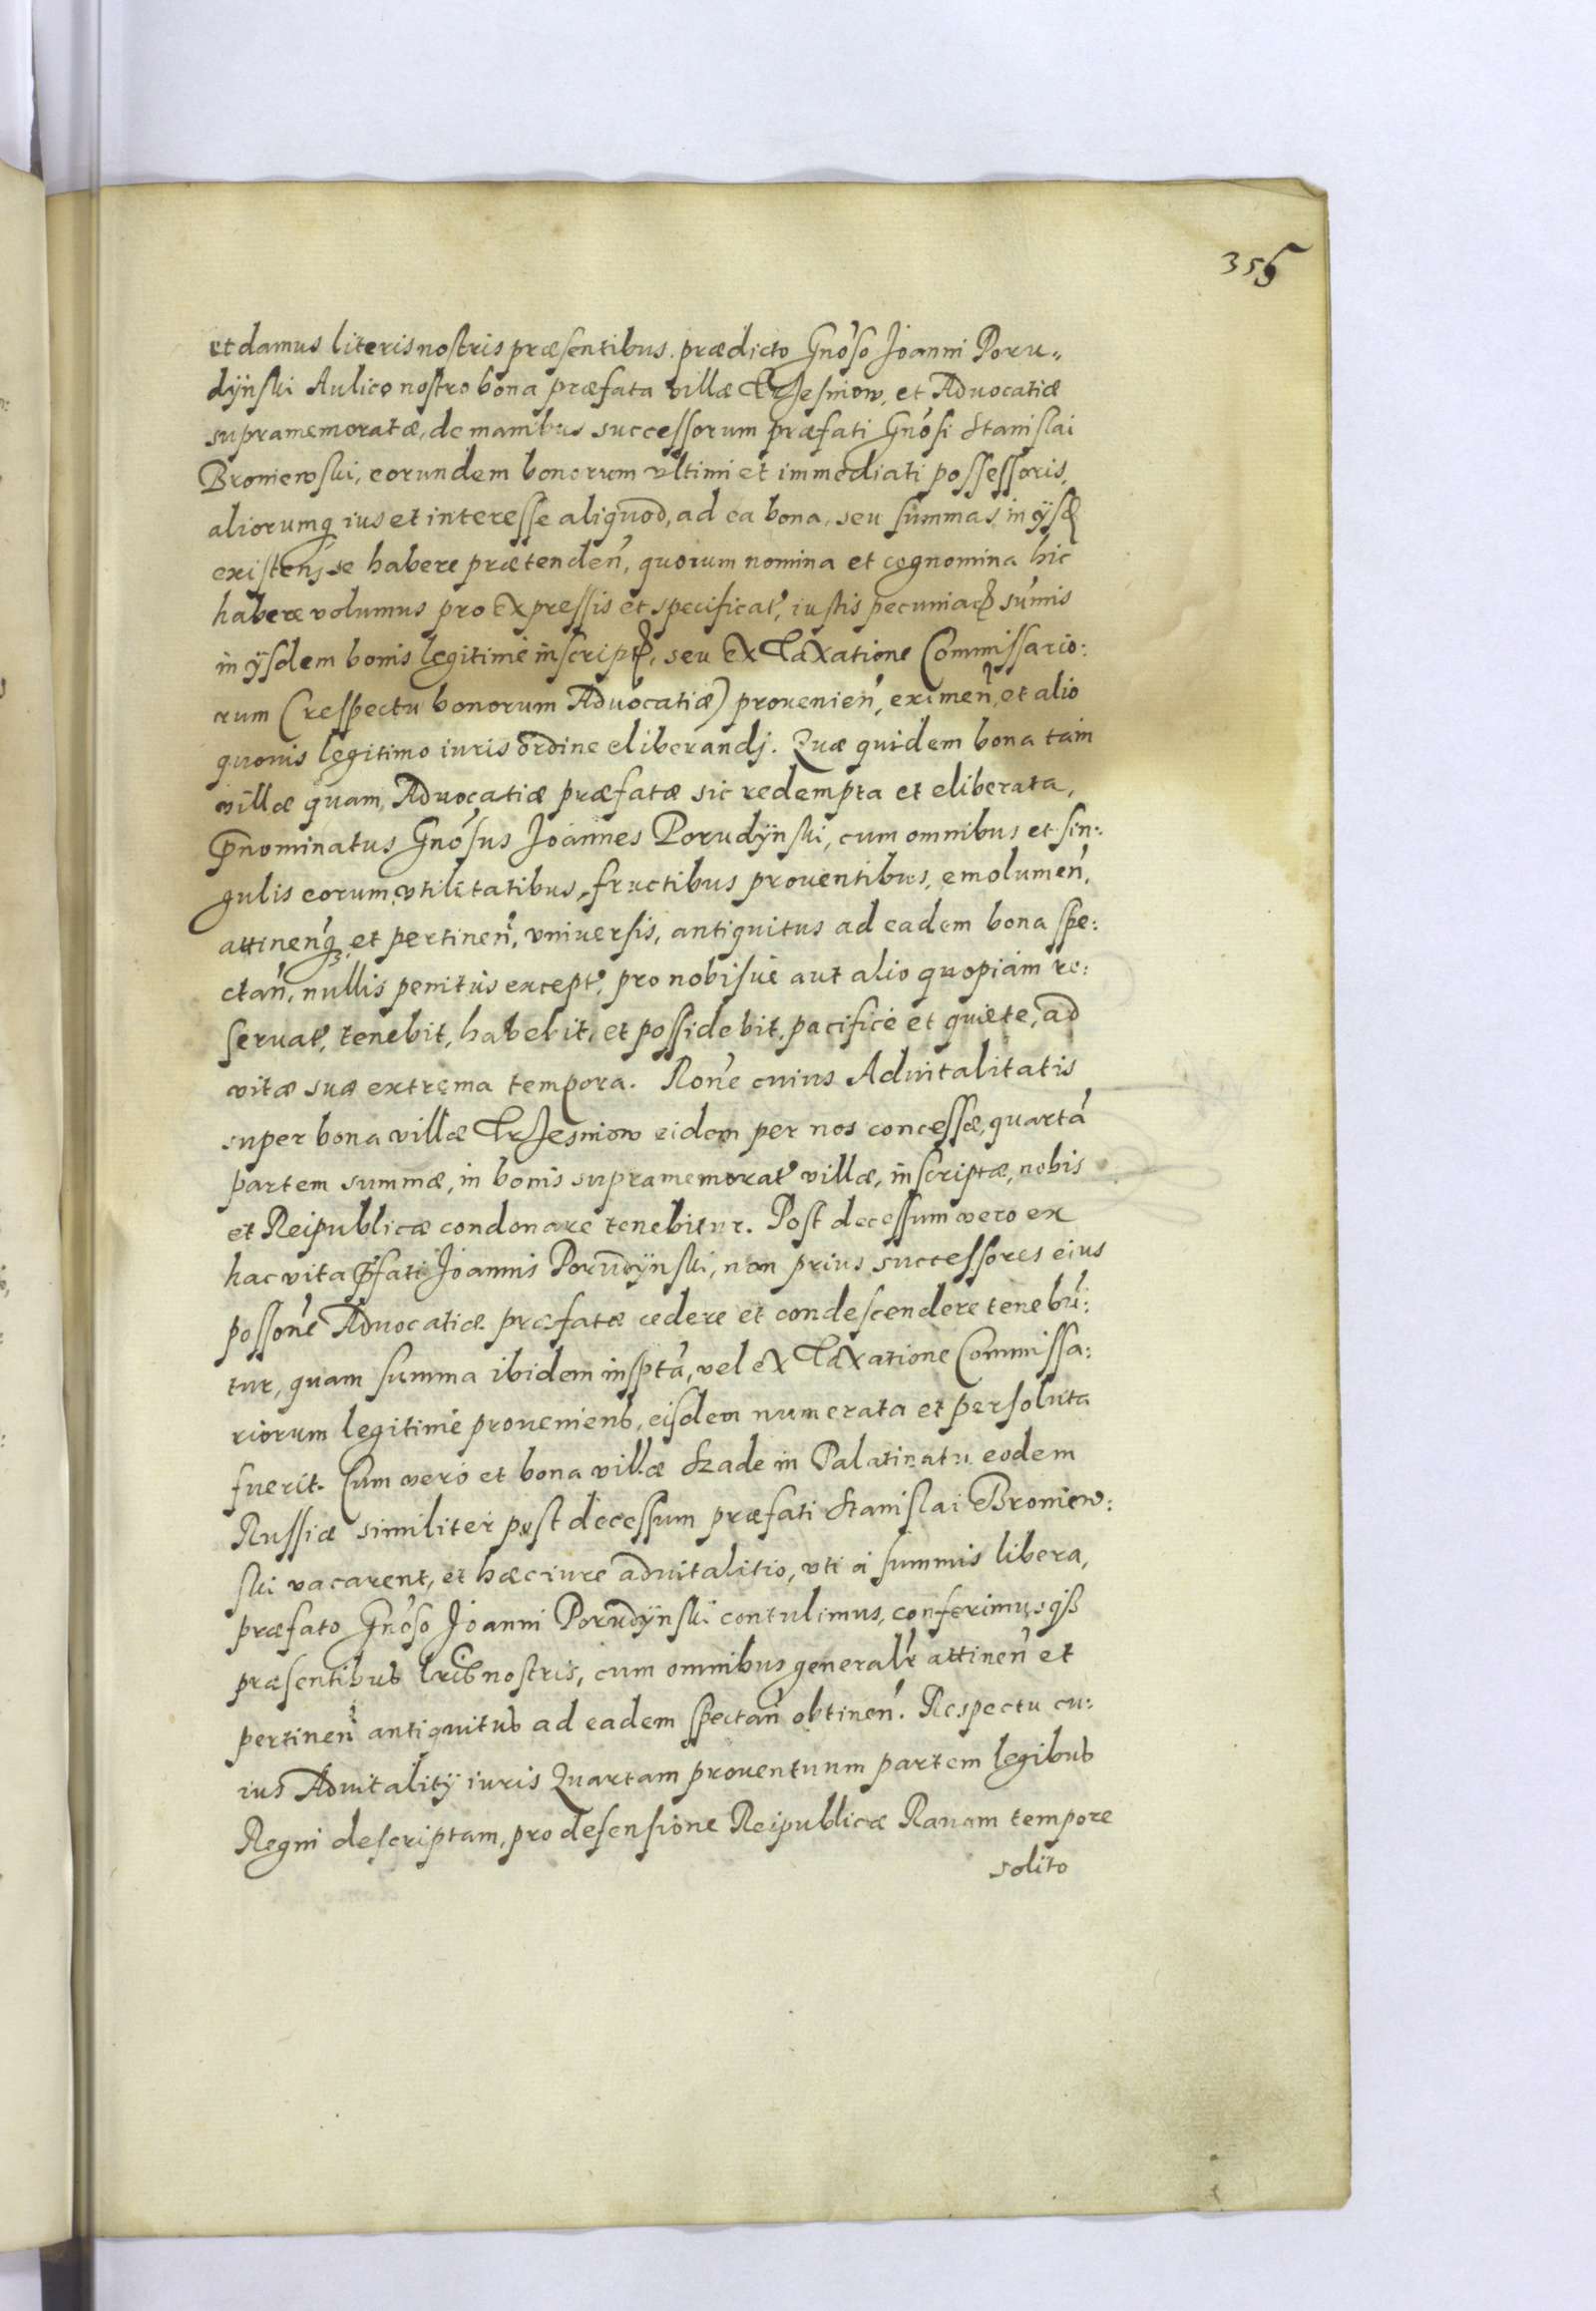 356
et damus literis nostris præsentibus prædicto Gnoso Joanni Poru„
dÿnski Aulico nostro bona præfata villæ Trzesniow, et Advocatiæ
supramemoratæ, de manibus successorum præfati Gnosi Stanislai
Broniewski, eorundem bonorum vltimi et immediati possessoris,
aliorumq ius et interesse aliquod, ad ea bona, seu summas in ÿsd
existens se habere prætenden, quorum nomina et cognomina hic
habere volumus pro expressis et specificat, iustis pecuniar sumis
in ÿsdem bonis legitime inscript, seu ex Taxatione Commissario:
rum (respectu bonorum Advocatiæ) prouenien, eximen, et alio
quouis legitimo iuris ordine eliberandj. Quæ quidem bona tam
villæ quam Advocatiæ præfatæ sic redempta et eliberata,
Pnominatus Gnosus Joannes Porudÿnski, cum omnibus et sin:
gulis eorum vtilitatibus, fructibus prouentibus, emolumen,
attinenq et pertinen, vniuersis, antiquitus ad eadem bona spe:
ctan, nullis penitus except, pro nobisue aut alio quopiam re:
seruat, tenebit, habebit, et possidebit, pacifice et quiete, ad
vitæ suæ extrema tempora. Rone cuius Aduitalitatis
super bona villæ Trzesniow eidem per nos concessæ, quarta
partem summæ, in bonis supramemorat villæ, inscriptæ, nobis
et Reipublicæ condonare tenebitur. Post decessum vero ex
hac vita pfati Joannis Porudÿnski, non prius successores eius
possone Advocatiæ præfatæ cedere et condescendere tenebu:
tur, quam summa ibidem inspta, vel ex Taxatione Commissa:
riorum legitime proueniens, eisdem numerata et persoluta
fuerit. Cum vero et bona villæ Szade in Palatinatu eodem
Russiæ similiter post decessum præfati Stanislai Broniew:
ski vacarent, et hæc iure aduitalitio, vti a summis libera,
præfato Gnoso Joanni Porudÿnski contulimus, conferimusqß
præsentibus lrib nostris, cum omnibus generalr attinen et
pertinen antiquitus ad eadem spectan obtinen. Respectu cu:
ius Aduitalitÿ iuris Quartam prouentuum partem legibus
Regni descriptam, pro defensione Reipublicæ Rauam tempore
solito